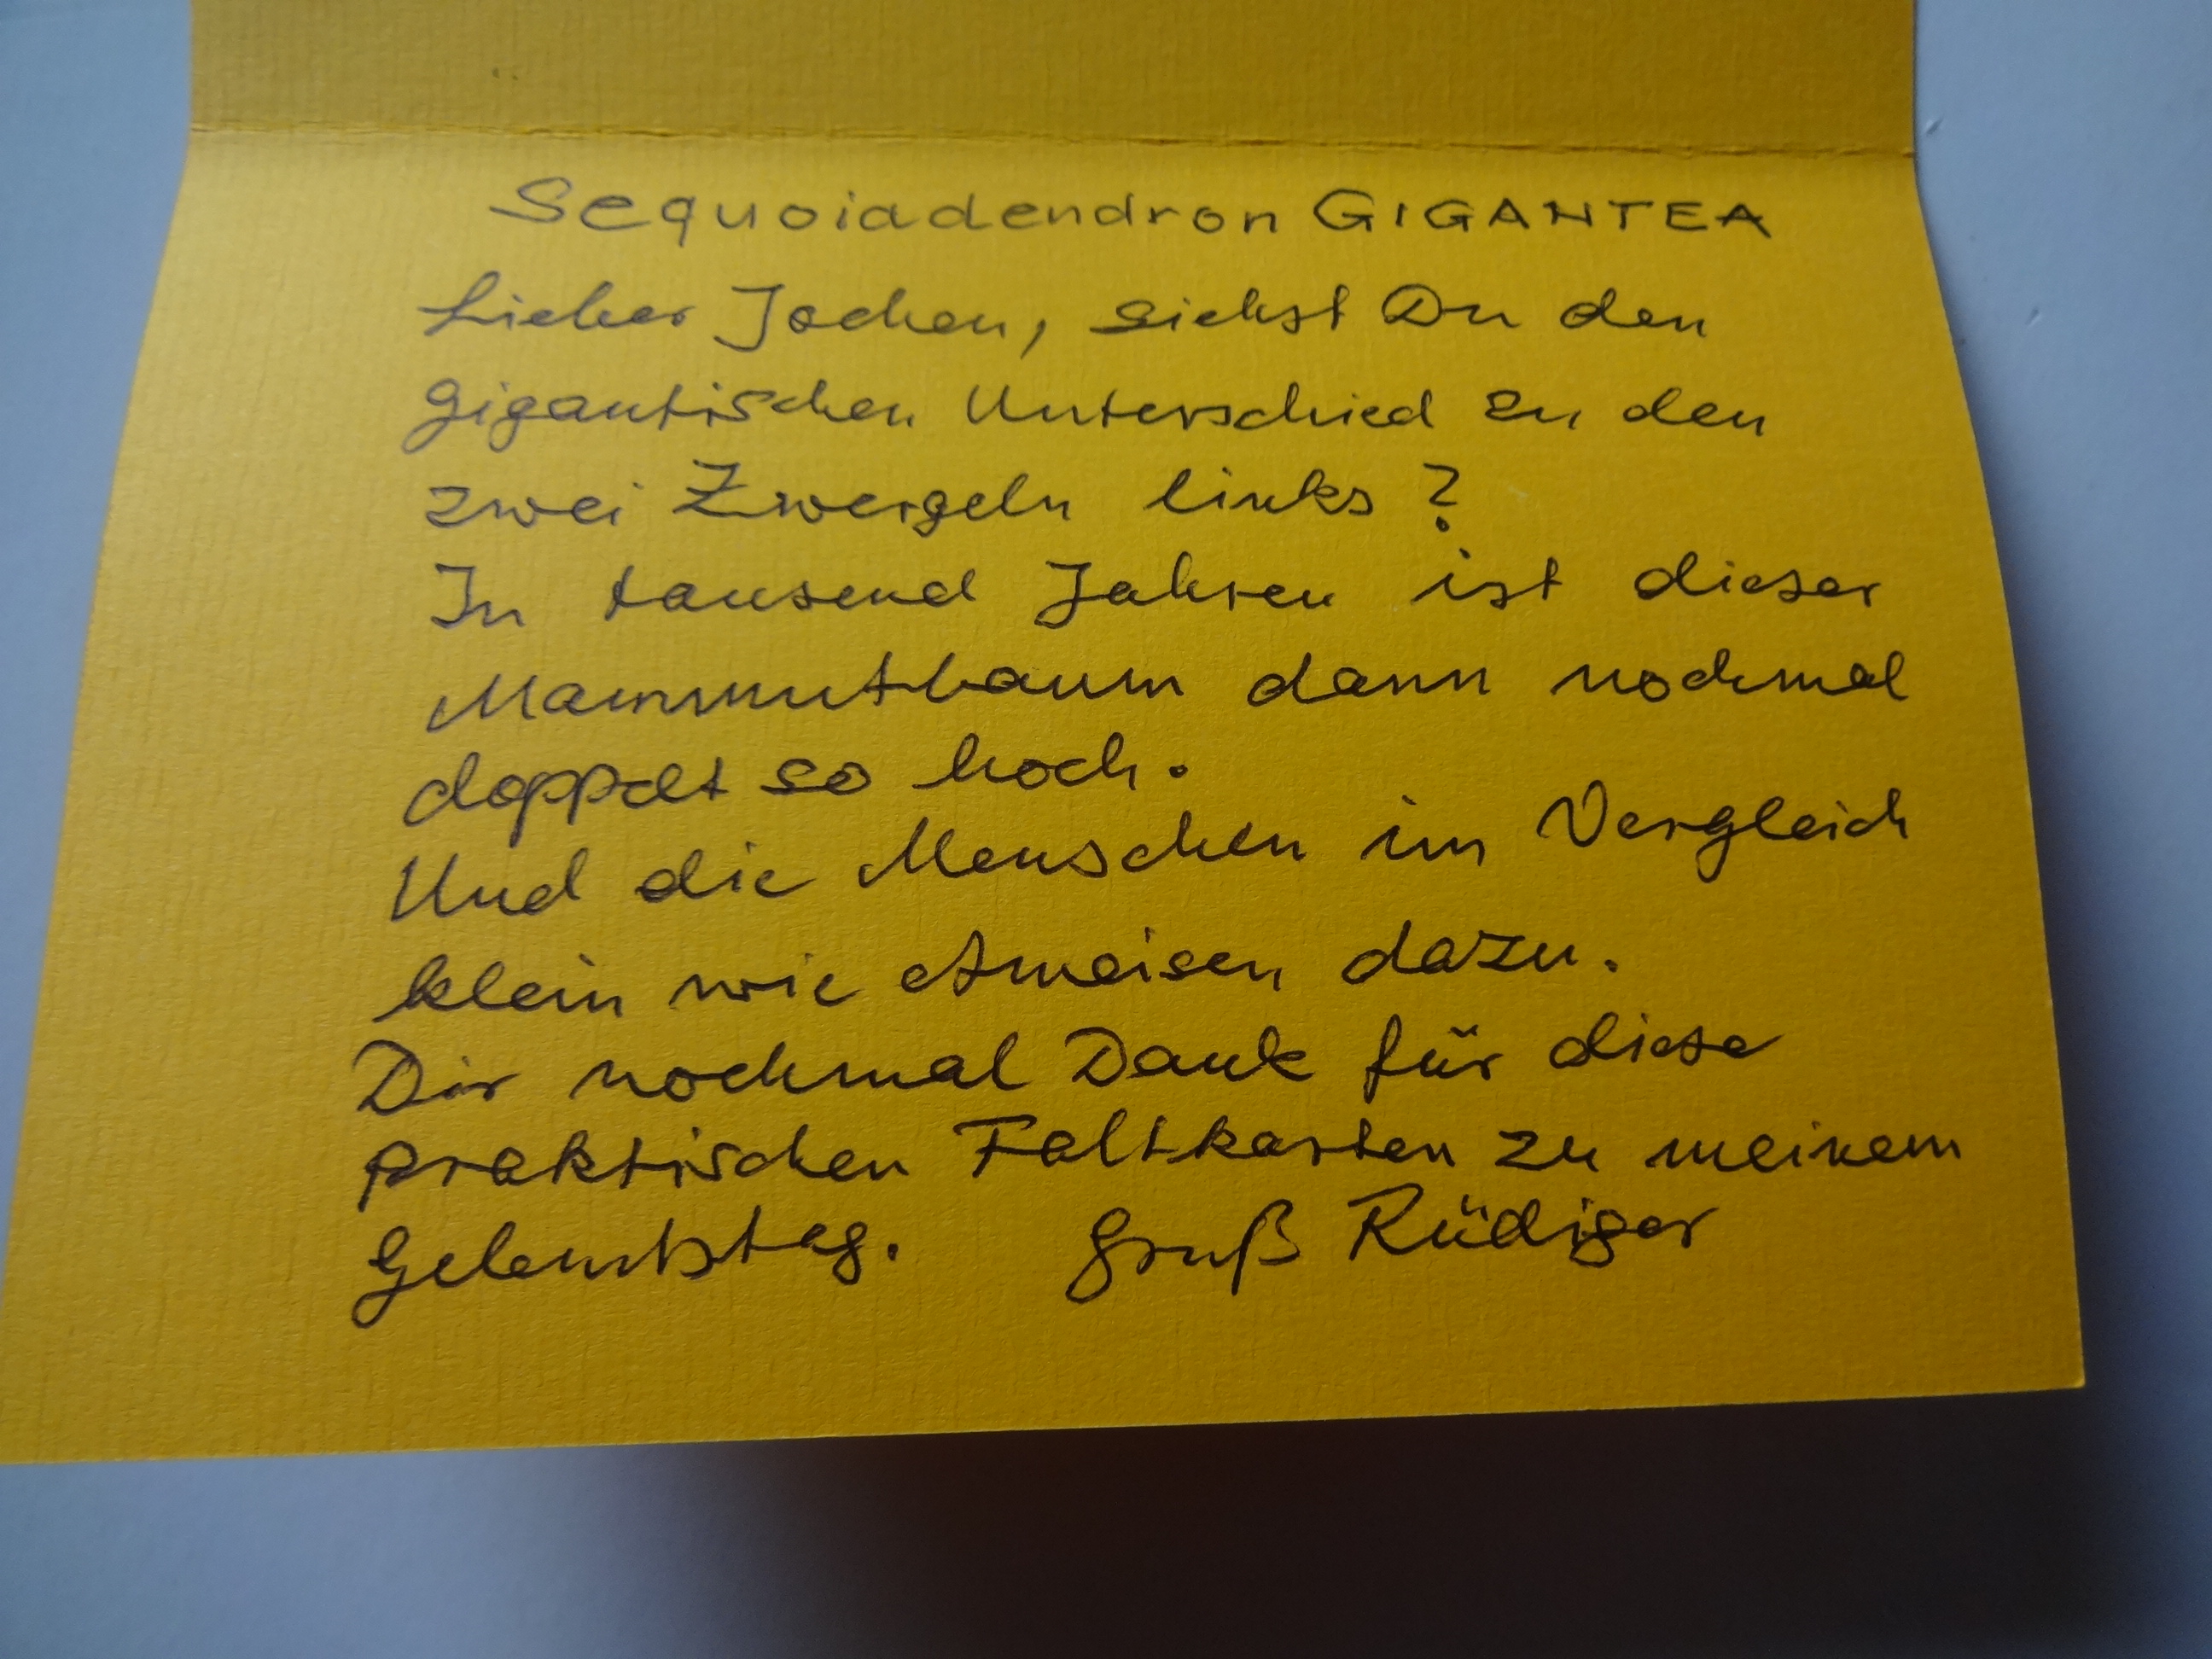 Sequoiadendron GIGANTEA
Lieber Jochen, siehst Du den
gigantischen Unterschied zu den
zwei Zwergeln links?
In tausend Jahren ist dieser
Mammutbaum dann nochmal
doppelt so hoch.
Und die Menschen im Vergleich
klein wie Ameisen dazu.
Dir nochmal Dank für diese
praktischen Faltkarten zu meinem
Geburtstag. Gruß Rüdiger